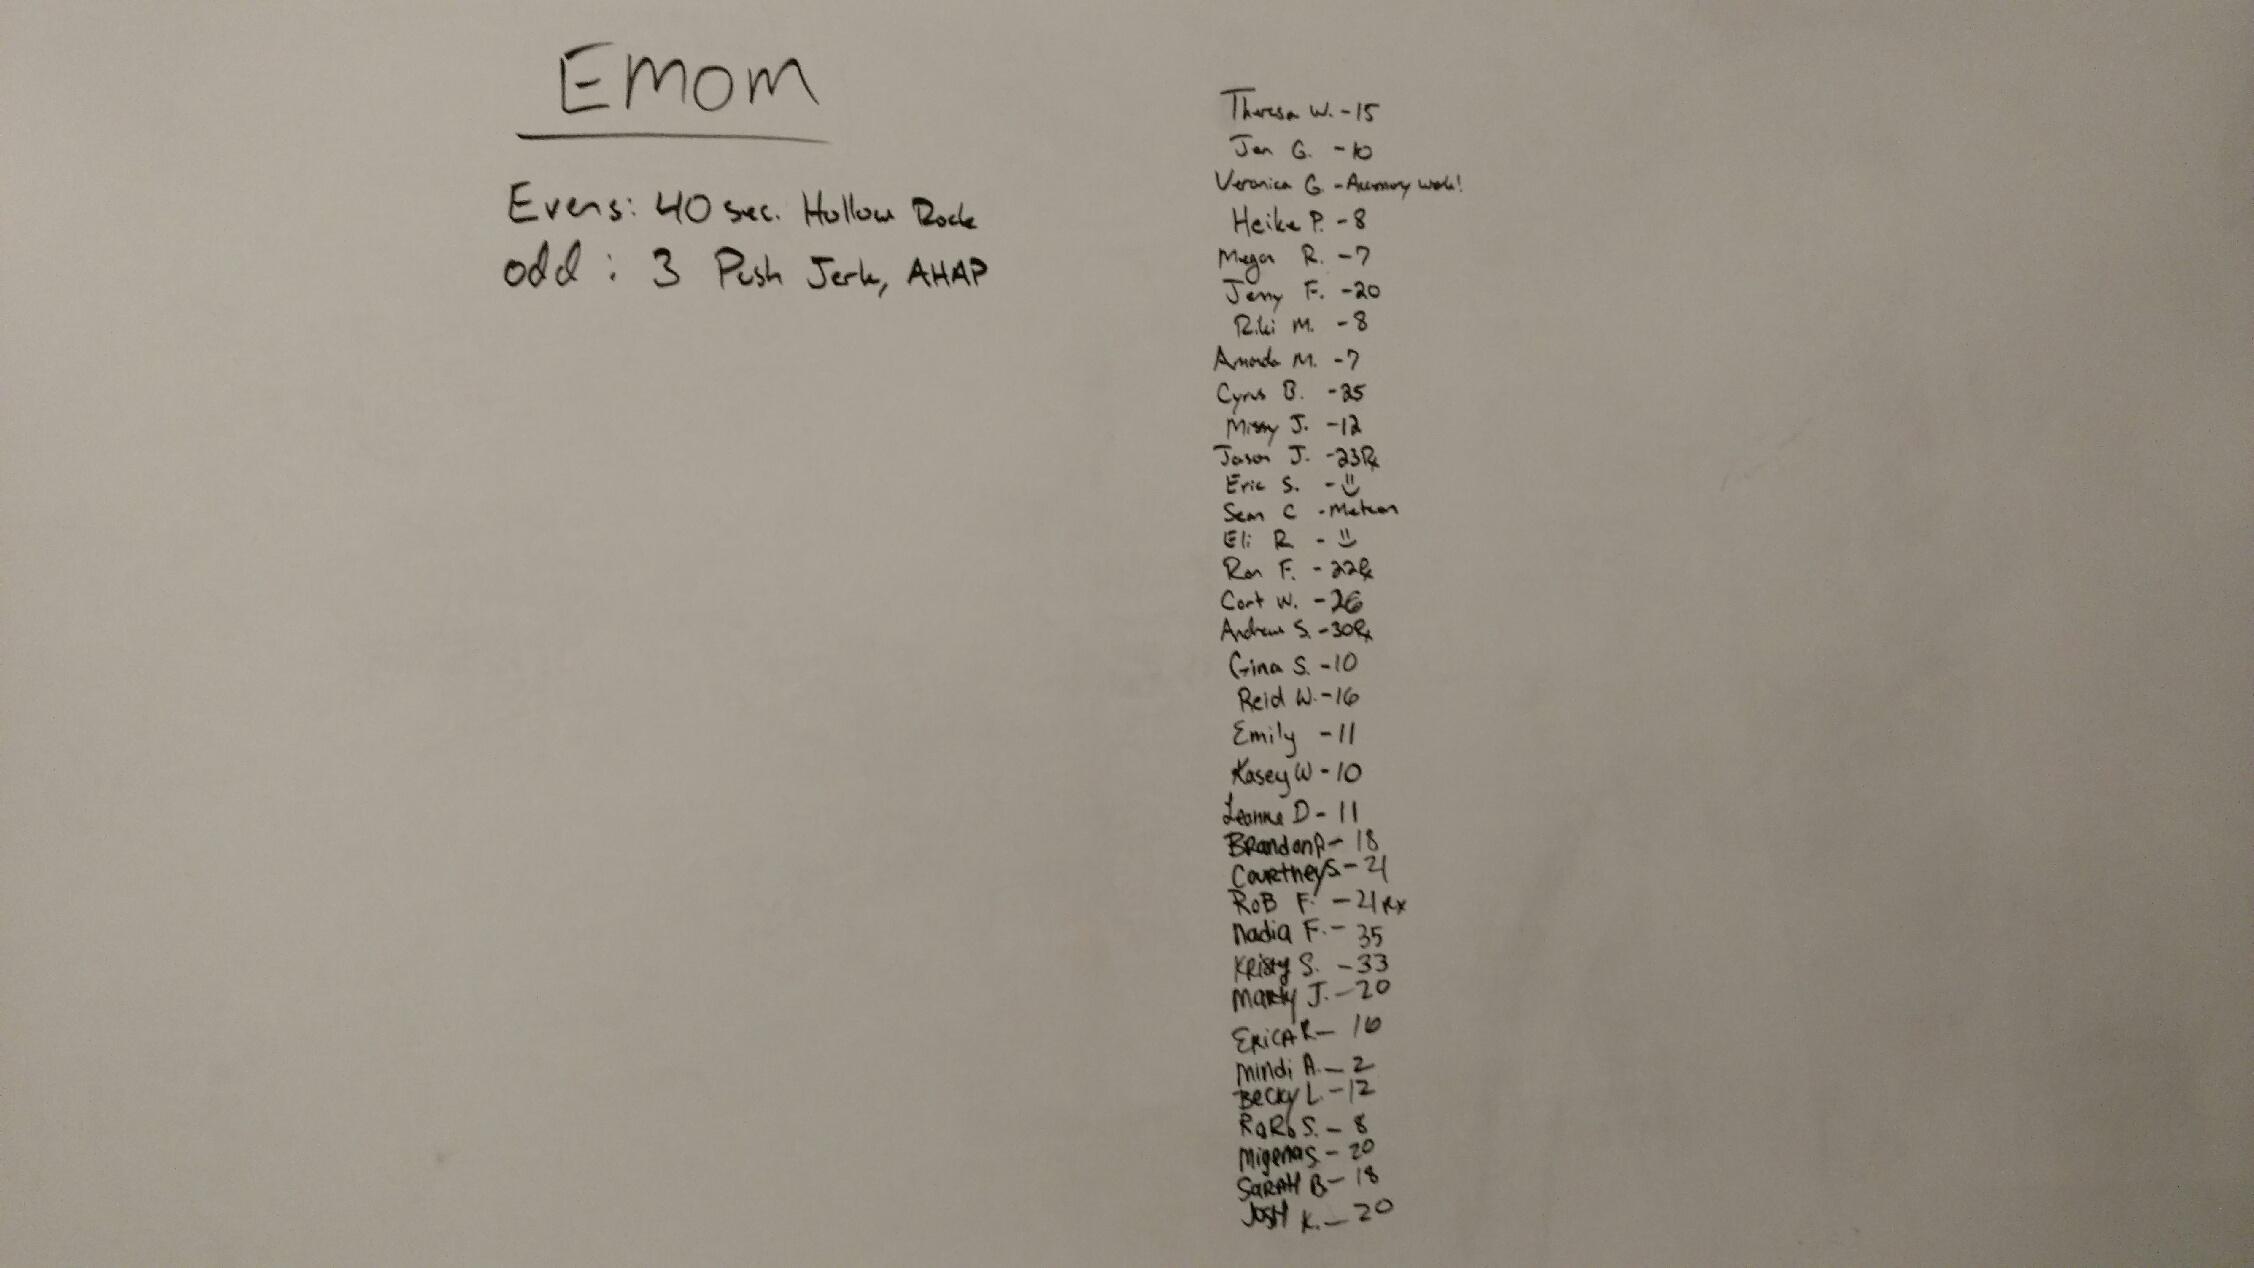 EMOM
Evens: 40 sec. Hollow Rock
odd : 3 Push Jerk, AHAP
Theresa W. -15
Jen G. -10
Veronica G. -Accessory work!
Heike P. -8
Megan R. -7
Jenny F. -20
Riki M. -8
Amanda M. -7
Cyrus B. -25
Missy J. -12
Jason J. -23Rx
Eric S. -
Sean C -Metcon
Eli R -
Ron F. -22Rx
Cort W. -26
Andrew S. -30Rx
Gina S. -10
Reid W. -16
Emily -11
Kasey W -10
Leanna D - 11
Brandon P - 18
Courtney S. - 21
Rob F. - 21 Rx
Nadia F. - 35
Kristy S. - 33
Marty J. - 20
Erica R - 16
Mindi A. - 2
Becky L. - 12
RoRo S. - 8
Migena S. - 20
Sarah B - 18
Josh K. - 20